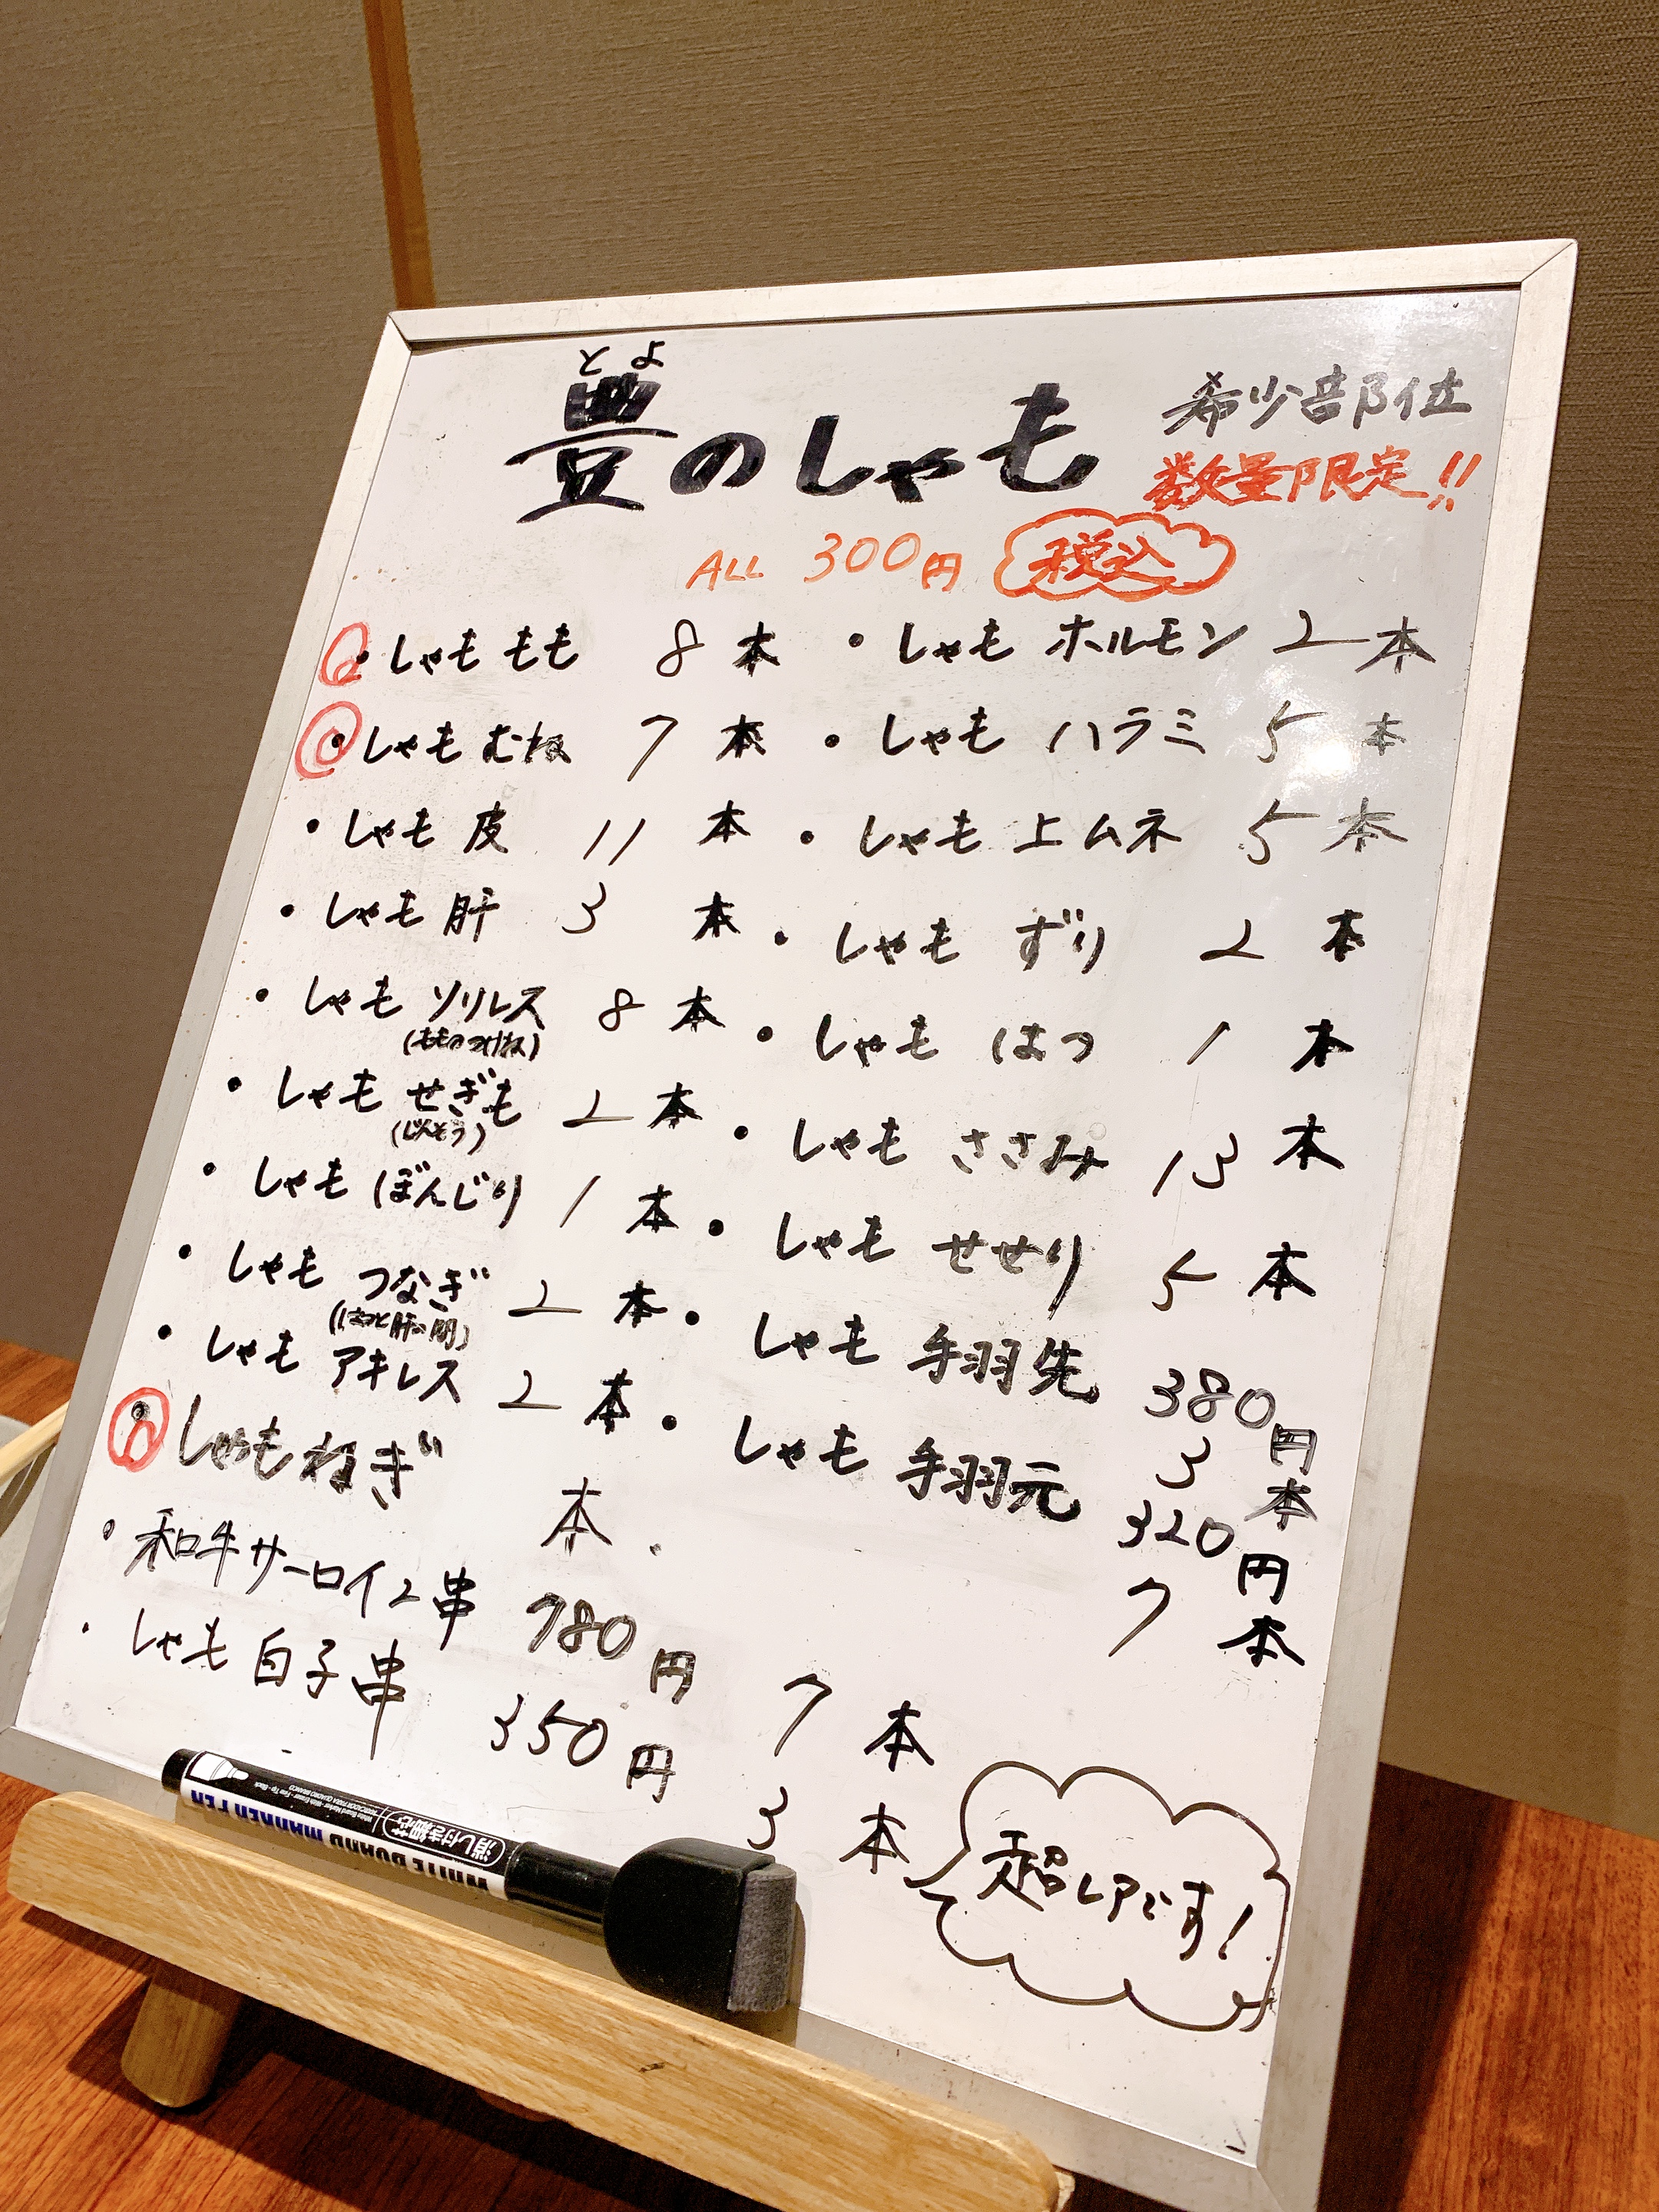 とよ
豊のしゃも
希少部位
数量限定!!
ALL 300円 税込
・しゃも もも 8本
・しゃも むね 7本
・しゃも 皮 11本
・しゃも 肝 3本
・しゃも ソリレス 8本
(もものつけね)
・しゃも せぎも 2本
(じんぞう)
・しゃも ぼんじり 1本
・しゃも つなぎ 2本
(はつと肝の間)
・しゃも アキレス 2本
・しゃもねぎ 本
・和牛サーロイン串 780円 7本
・しゃも 白子串 350円 3本
・しゃも ホルモン 2本
・しゃも ハラミ 5本
・しゃも 上ムネ 5本
・しゃも ずり 2本
・しゃも はつ 1本
・しゃも ささみ 13本
・しゃも せせり 5本
・しゃも 手羽先 380円
3本
・しゃも 手羽元 320円
7本
超レアです!
消し付き細芯
WHITE BOARD MARKER PEN